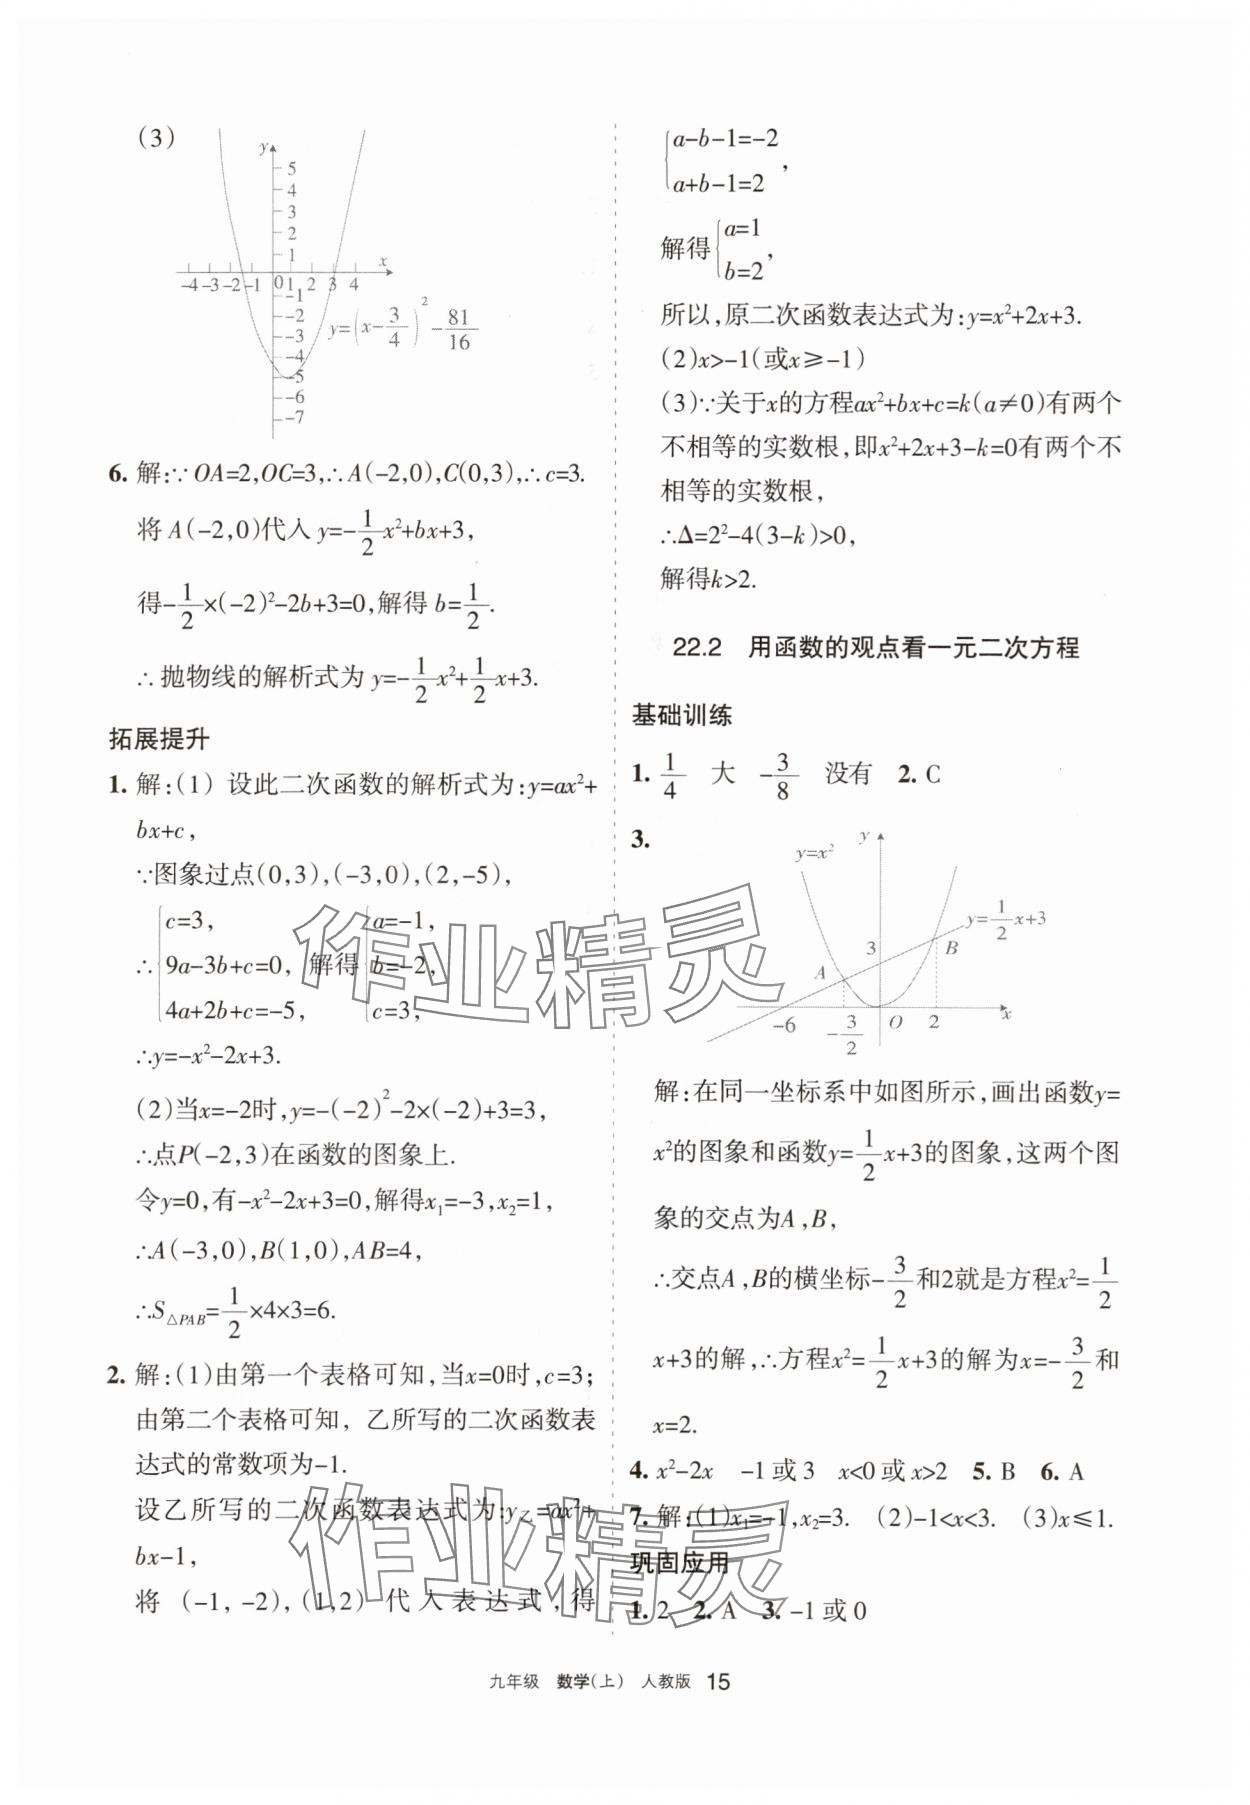 (3)
y
5
4
3
2
1
x
-4 -3 -2 -1 0 1 2 3 4
-1
-2
-3
-4
-5
-6
-7
y=(x-3/4)²-81/16
6. 解:∵OA=2,OC=3,∴A(-2,0),C(0,3),∴c=3.
将A(-2,0)代入y=-1/2x²+bx+3,
得-1/2×(-2)²-2b+3=0,解得b=1/2.
∴抛物线的解析式为y=-1/2x²+1/2x+3.
拓展提升
1. 解:(1)设此二次函数的解析式为:y=ax²+
bx+c,
∵图象过点(0,3),(-3,0),(2,-5),
∴{c=3, 9a-3b+c=0, 4a+2b+c=-5, 解得{a=-1, b=-2, c=3,
∴y=-x²-2x+3.
(2)当x=-2时,y=-(-2)²-2×(-2)+3=3,
∴点P(-2,3)在函数的图象上.
令y=0,有-x²-2x+3=0,解得x₁=-3,x₂=1,
∴A(-3,0),B(1,0),AB=4,
∴S△PAB=1/2×4×3=6.
2. 解:(1)由第一个表格可知,当x=0时,c=3;
由第二个表格可知,乙所写的二次函数表
达式的常数项为-1.
设乙所写的二次函数表达式为:y乙=ax²+
bx-1,
将(-1,-2),(1,2)代入表达式,得
{a-b-1=-2
a+b-1=2,
解得{a=1
b=2,
所以,原二次函数表达式为:y=x²+2x+3.
(2)x>-1(或x≥-1)
(3)∵关于x的方程ax²+bx+c=k(a≠0)有两个
不相等的实数根,即x²+2x+3-k=0有两个不
相等的实数根,
∴Δ=2²-4(3-k)>0,
解得k>2.
22.2 用函数的观点看一元二次方程
基础训练
1. 1/4 大 -3/8 没有 2. C
3.
y
y=x²
y=1/2x+3
3
B
A
-6 -3/2 O 2 x
解:在同一坐标系中如图所示,画出函数y=
x²的图象和函数y=1/2x+3的图象,这两个图
象的交点为A,B,
∴交点A,B的横坐标-3/2和2就是方程x²=1/2
x+3的解,∴方程x²=1/2x+3的解为x=-3/2和
x=2.
4. x²-2x -1或3 x<0或x>2 5. B 6. A
7. 解:(1)x₁=-1,x₂=3. (2)-1<x<3. (3)x≤1.
巩固应用
1. 2 2. A 3. -1或0
九年级 数学(上) 人教版 15
作业精灵
作业精灵